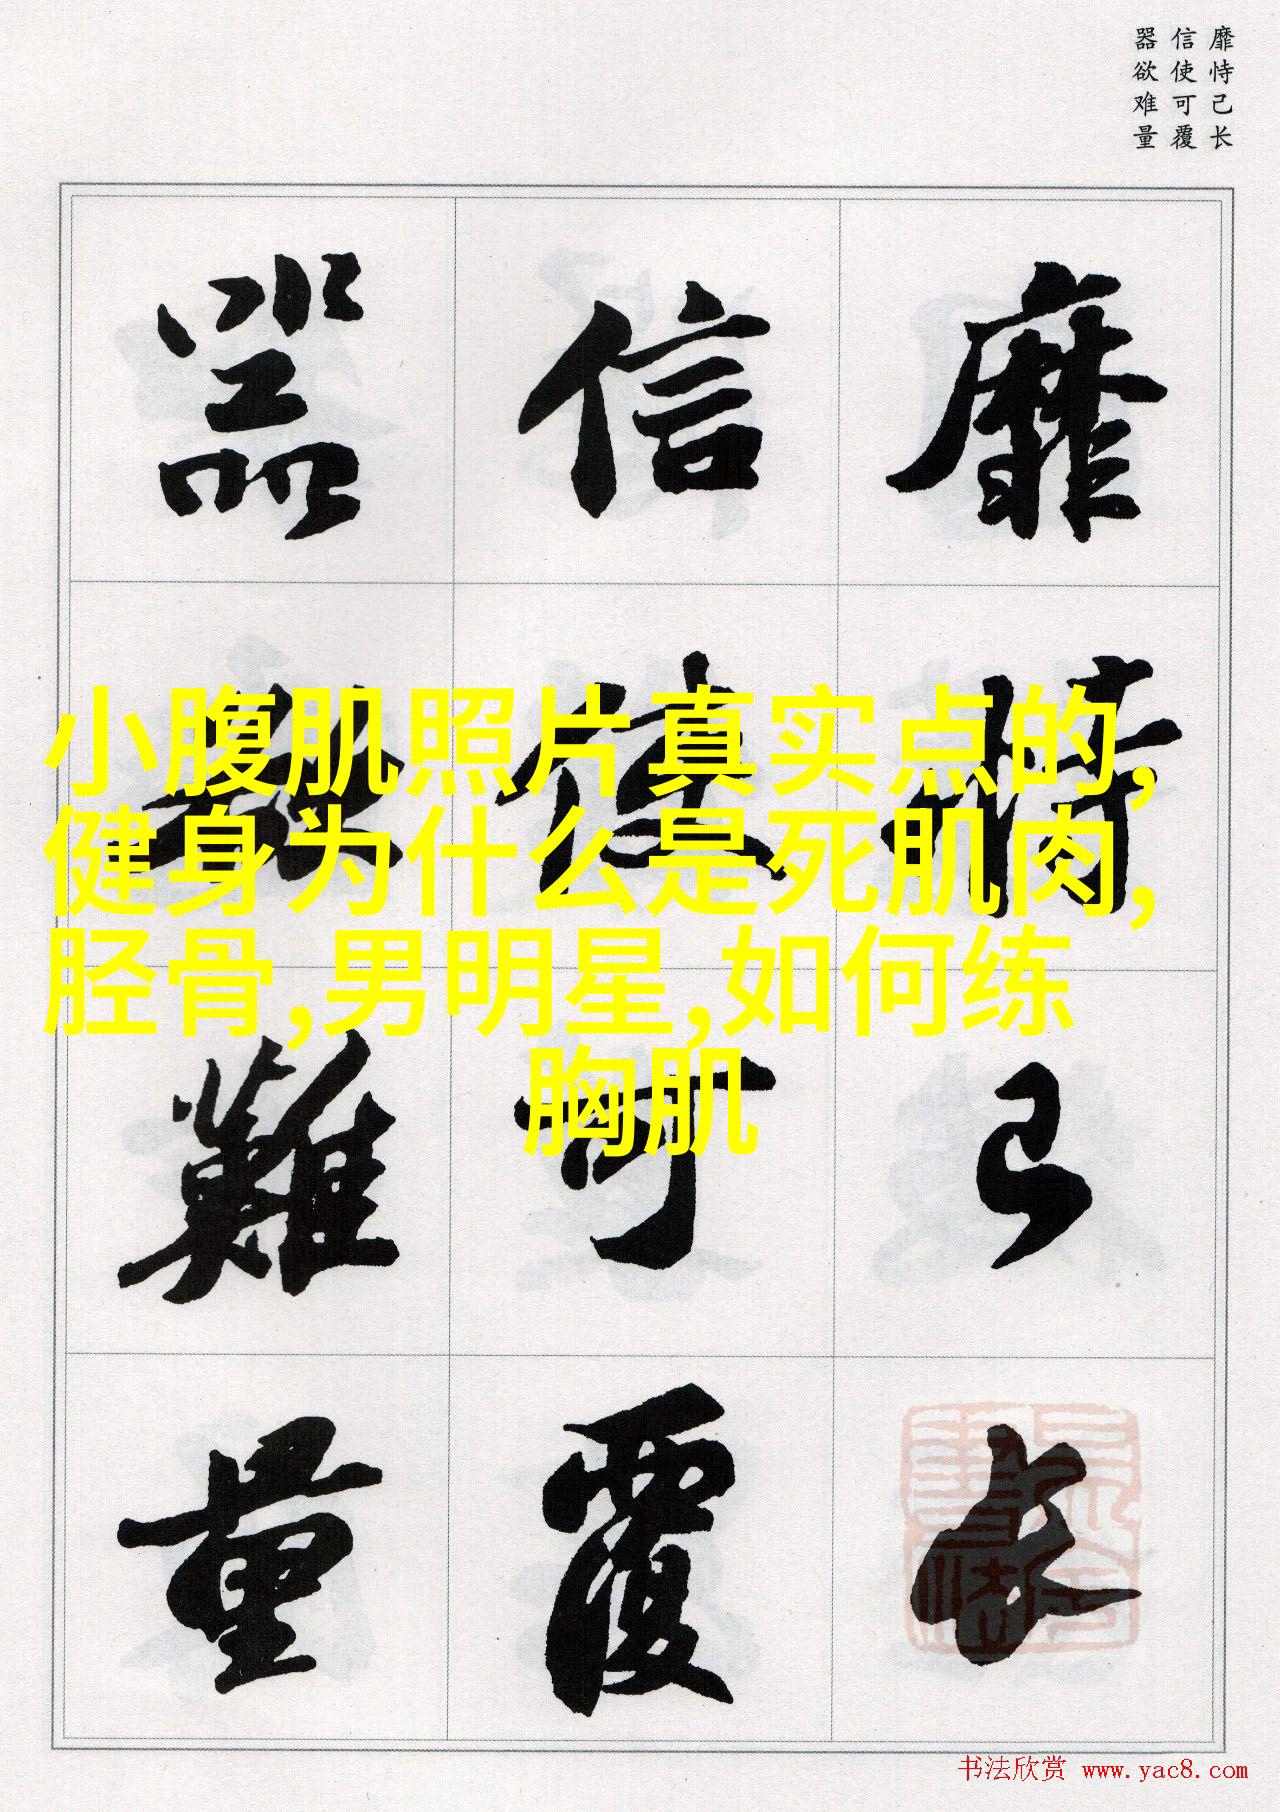 靡恃己长
信使可覆
器欲难量
靡恃己长
信使可覆
器欲難量
小腹肌照片真实点的,
健身为什么是死肌肉,
胫骨,男明星,如何练
胸肌
书法欣赏 www.yac8.com